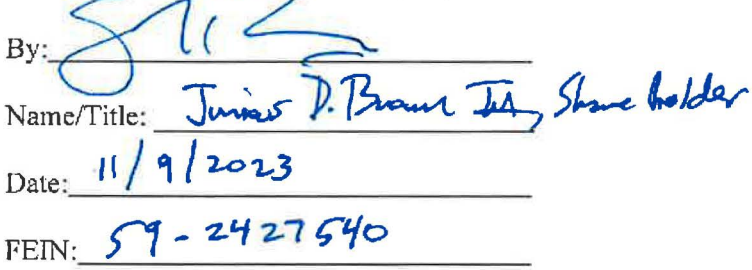 By:
Name/Title: Junious D. Brown III, Shareholder
Date: 11/9/2023
FEIN: 59-2427540